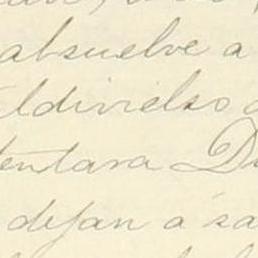 absuelve a
ldivielso
entara D
dejan a sa